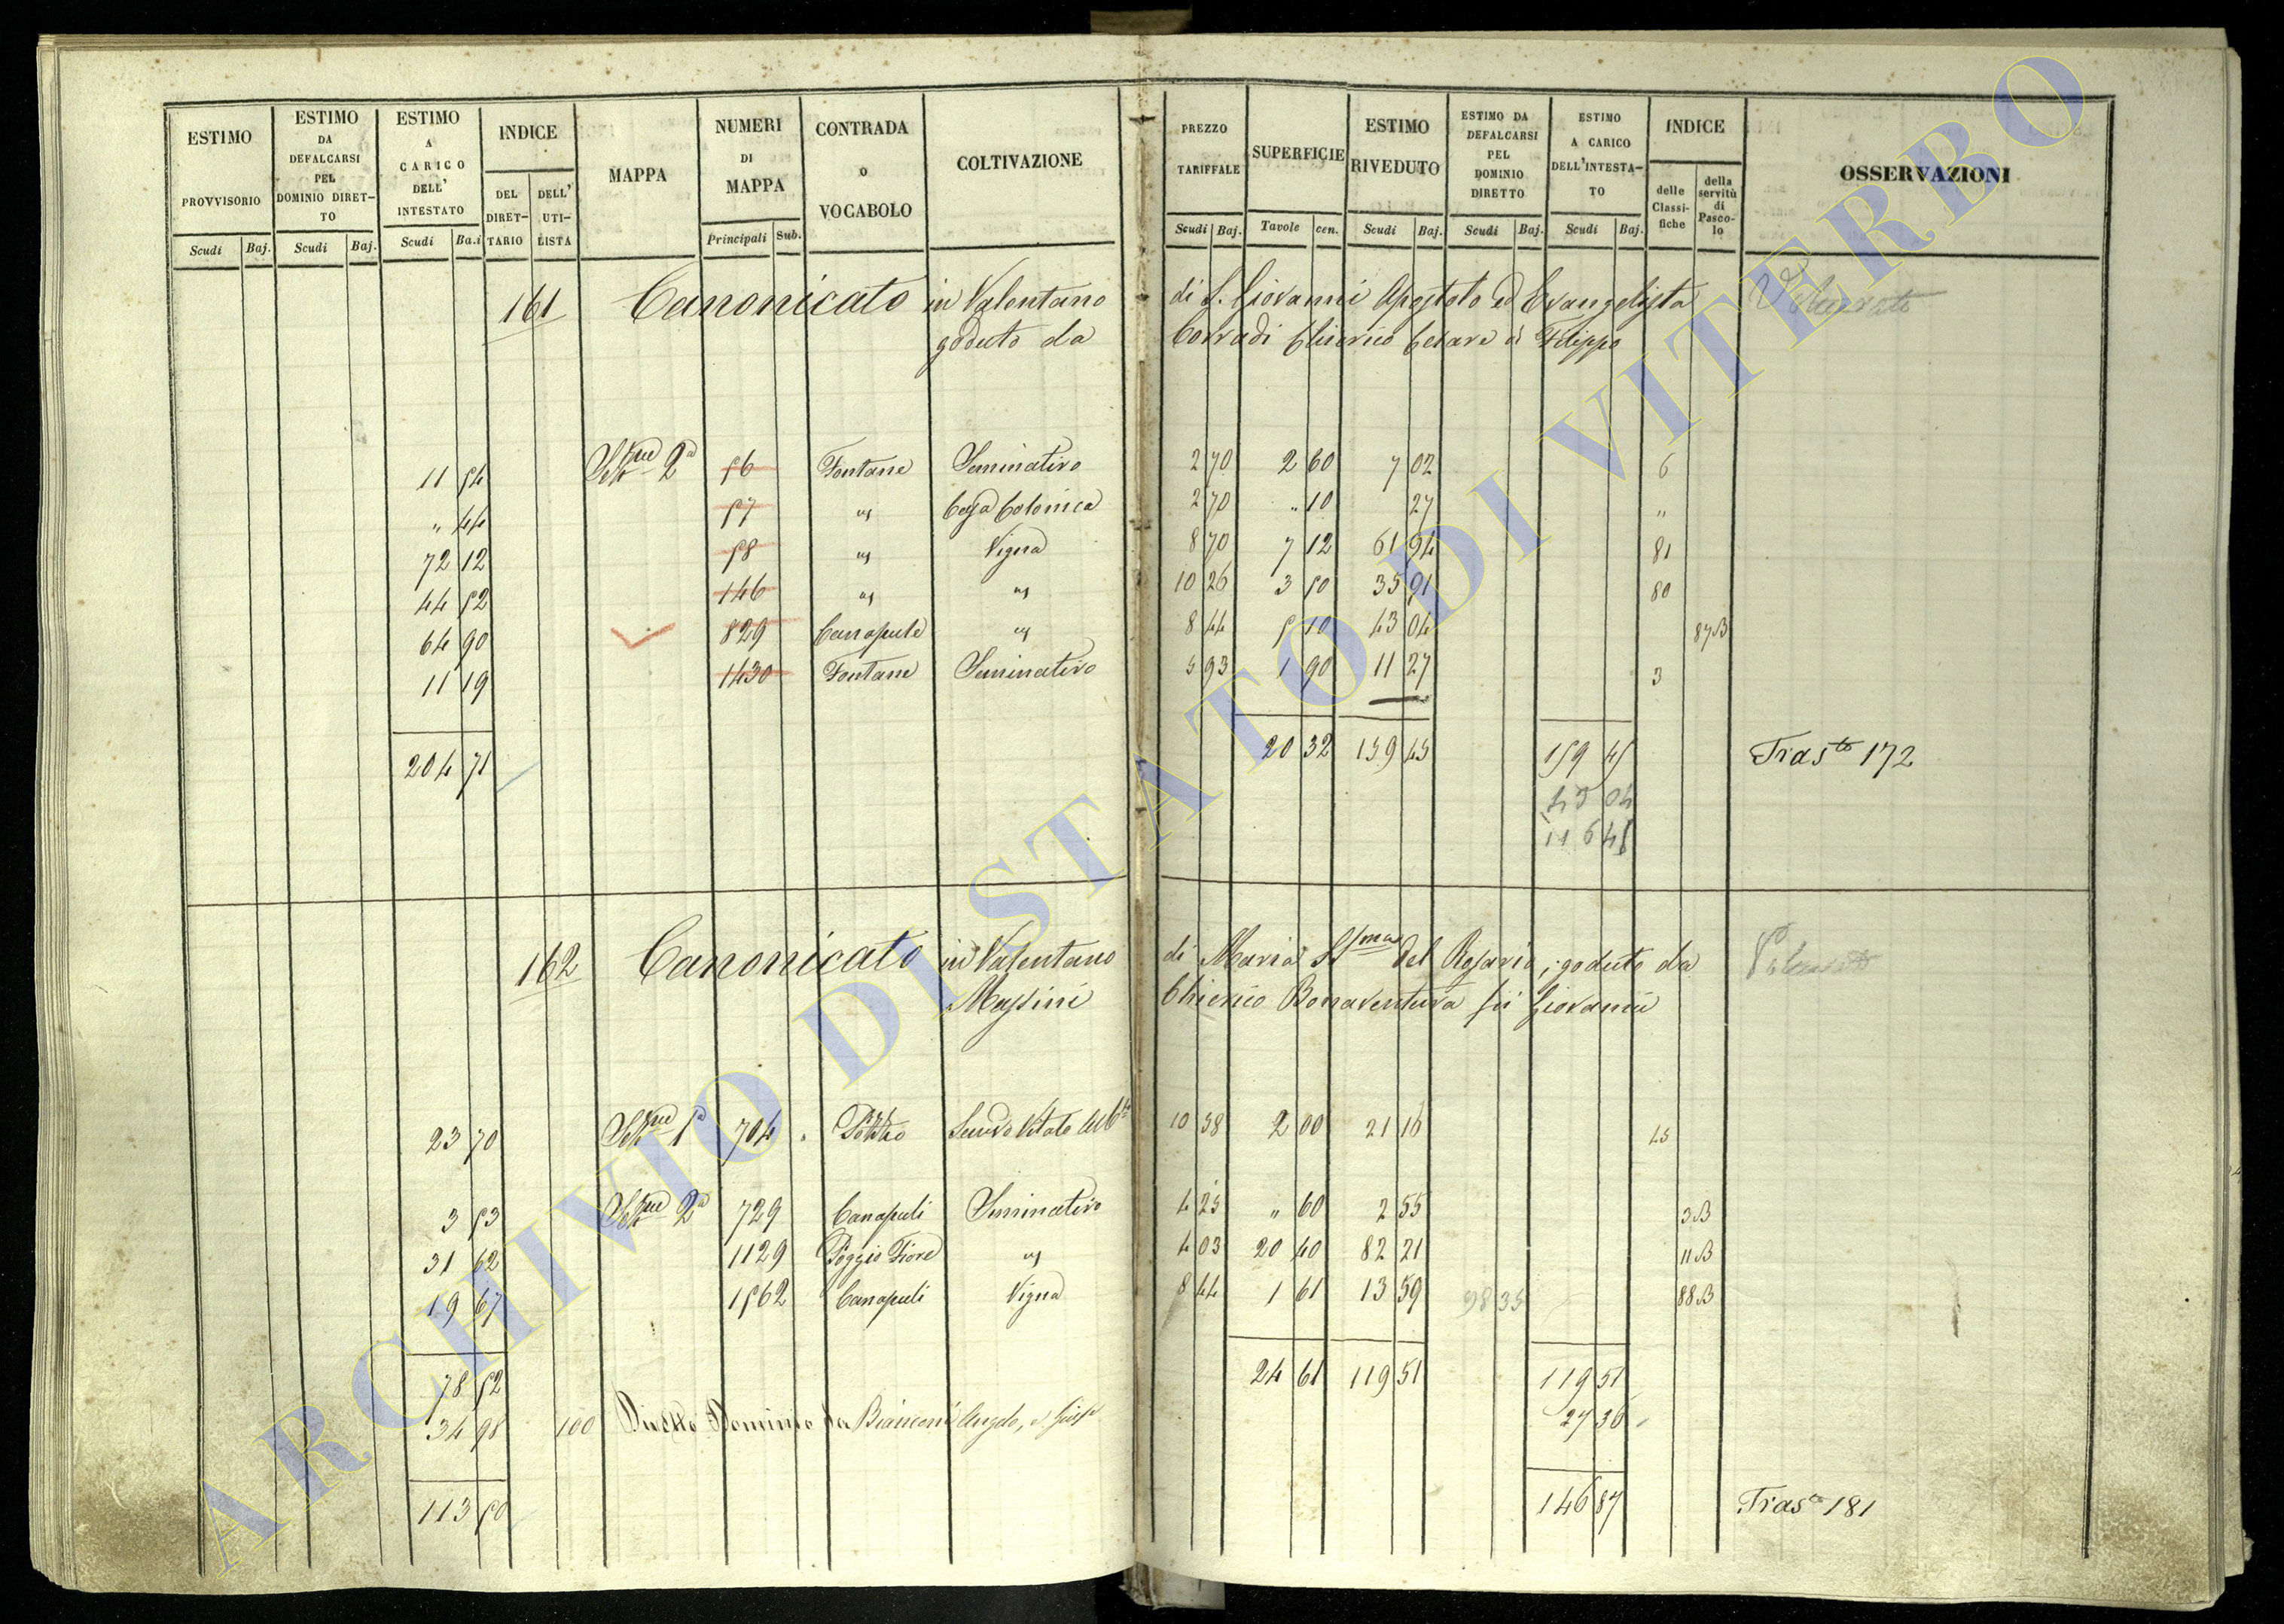 ESTIMO PROVVISORIO Scudi Baj.
ESTIMO DA DEFALCARSI PEL DOMINIO DIRET-TO Scudi Baj.
ESTIMO A CARICO DELL' INTESTATO Scudi Ba.i
INDICE DEL DIRET-TARIO DELL' UTI-LISTA
MAPPA
NUMERI DI MAPPA Principali Sub.
CONTRADA O VOCABOLO
COLTIVAZIONE
PREZZO TARIFFALE Scudi Baj.
SUPERFICIE Tavole cen.
ESTIMO RIVEDUTO Scudi Baj.
ESTIMO DA DEFALCARSI PEL DOMINIO DIRETTO Scudi Baj.
ESTIMO A CARICO DELL'INTESTA-TO Scudi Baj.
INDICE delle Classi-fiche della servitù di Pasco-lo
OSSERVAZIONI
161 Canonicato in Valentano di S. Giovanni Apostolo ed Evangelista
goduto da Corradi Chierico Cesare di Filippo
11 54 Sez.ne 2a 56 Fontane Seminativo 2 70 2 60 7 02 6
" 44 57 " Casa Colonica 2 70 " 10 27 "
72 12 58 " Vigna 8 70 7 12 61 94 81
44 52 146 " " 10 26 3 50 35 91 80
64 90 829 Canapule " 8 44 5 10 43 04 87B
11 19 1430 Fontane Seminativo 5 93 1 90 11 27 3
204 71 20 32 159 45 159 45 Tras.to 172
43 04
116 41
162 Canonicato in Valentano di Maria SSma del Rosario, goduto da
Massini Chierico Bonaventura fù Giovanni
23 70 Sez.ne 1a 704 Pozzo 10 58 2 00 21 16 45
3 53 Sez.ne 2a 729 Canapuli Seminativo 4 25 " 60 2 55 3B
31 62 1129 Poggio Fiore " 4 03 20 40 82 21 11B
19 67 1562 Canapuli Vigna 8 44 1 61 13 59 98 35 88B
78 52 24 61 119 51 119 51
34 98 100 Diretto Dominio da Bianconi Angelo, e Giusp 27 36
113 50 146 87 Tras.to 181
ARCHIVIO DI STATO DI VITERBO